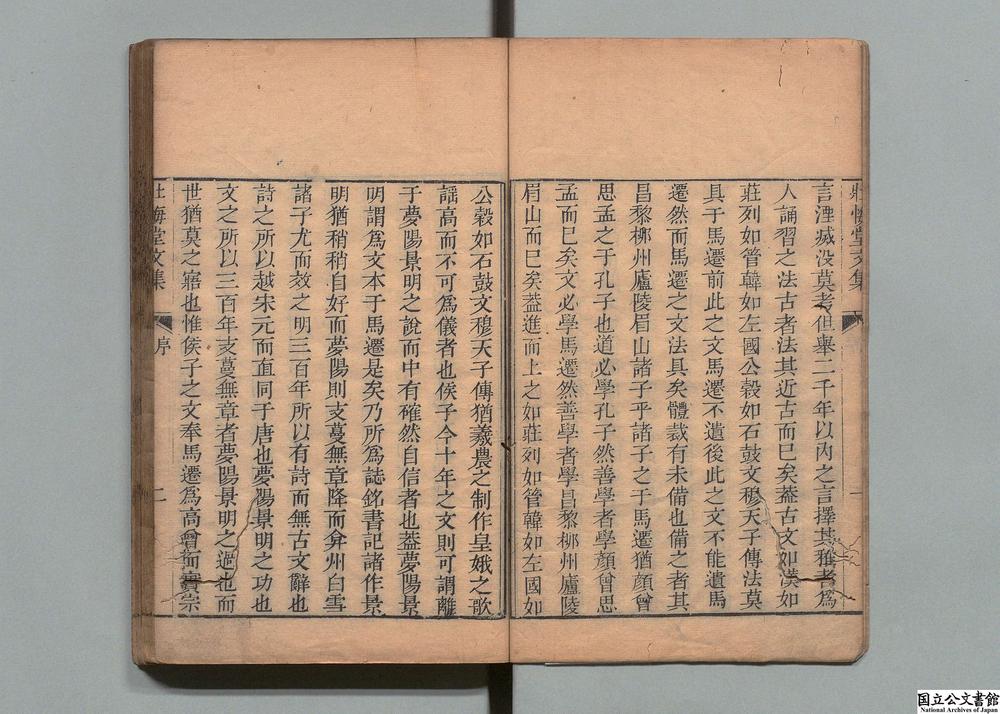 壯悔堂文集 序 一
言湮滅没莫考但舉二千年以内之言擇其雅者爲
人誦習之法古者法其近古而已矣葢古文如漢如
莊列如管韓如左國公穀如石鼓文穆天子傳法莫
具于馬遷前此之文馬遷不遺後此之文不能遺馬
遷然而馬遷之文法具矣體裁有未備也備之者其
昌黎柳州廬陵眉山諸子乎諸子之于馬遷猶顔曾
思孟之于孔子也道必學孔子然善學者學顔曾思
孟而已矣文必學馬遷然善學者學昌黎柳州廬陵
眉山而已矣葢進而上之如莊列如管韓如左國如
公穀如石鼓文穆天子傳猶羲農之制作皇娥之歌
謡高而不可爲儀者也侯子今十年之文則可謂離
于夢陽景明之說而中有確然自信者也葢夢陽景
明謂爲文本于馬遷是矣乃所爲誌銘書記諸作景
明猶稍稍自好而夢陽則支蔓無章降而弇州白雪
諸子尤而效之明三百年所以有詩而無古文辭也
詩之所以越宋元而直同于唐也夢陽景明之功也
文之所以三百年支蔓無章者夢陽景明之過也而
世猶莫之寤也惟侯子之文奉馬遷爲高曾而實宗
壯悔堂文集 序 二
国立公文書館
National Archives of Japan